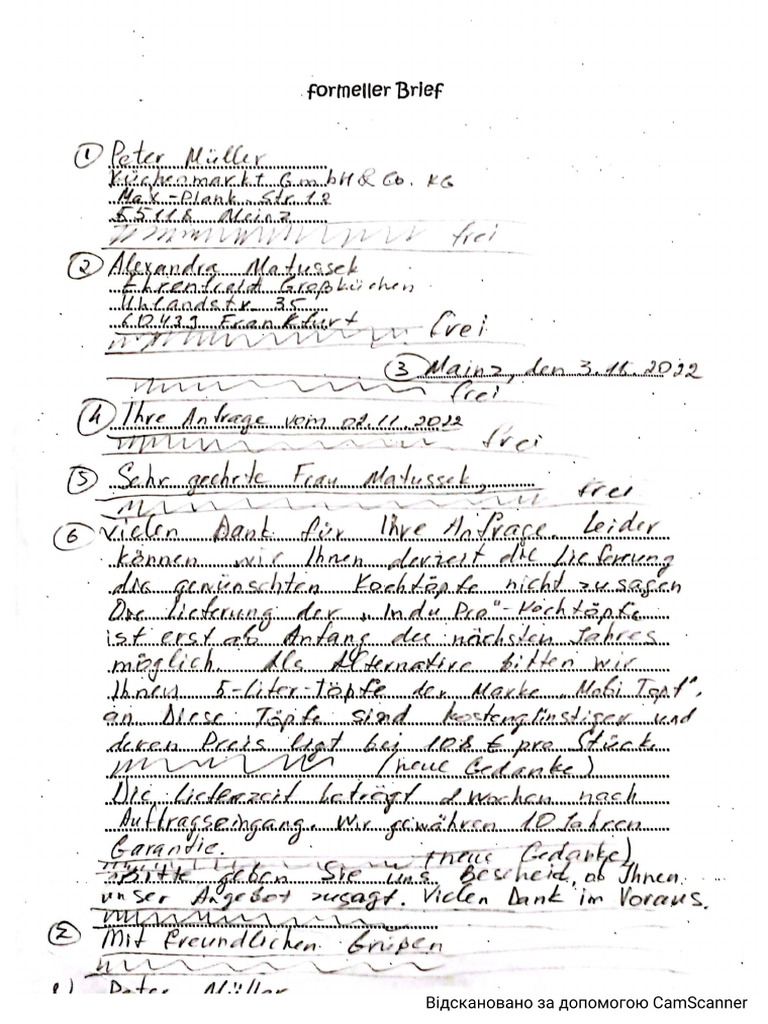 formeller Brief
① Peter Müller
Küchenmarkt GmbH & Co. KG
Max-Plank-Str. 12
55118 Mainz
frei
② Alexandra Matussek
Ehrenfeld Großküchen
Uhlandstr. 35
60439 Frankfurt
frei
③ Mainz, den 3.11.2022
frei
④ Ihre Anfrage vom 02.11.2022
frei
⑤ Sehr geehrte Frau Matussek,
frei
⑥ vielen Dank für Ihre Anfrage. Leider
können wir Ihnen derzeit die Lieferung
die gewünschten Kochtöpfe nicht zusagen
Die Lieferung der „Indu Pro"-Kochtöpfe
ist erst ab Anfang des nächsten Jahres
möglich. Als Alternative bitten wir
Ihnen 5-Liter-Töpfe der Marke „Mobi Topf",
an. Diese Töpfe sind kostengünstiger und
deren Preis ligt bei 108 € pro Stück.
(neue Gedanke)
Die Lieferzeit beträgt 2 Wochen nach
Auftragseingang. Wir gewähren 10 Jahren
Garantie.
(neue Gedanke)
Bitte geben Sie uns Bescheid, ob Ihnen
unser Angebot zusagt. Vielen Dank im Voraus.
Mit freundlichen Grüßen
Peter Müller
Відскановано за допомогою CamScanner